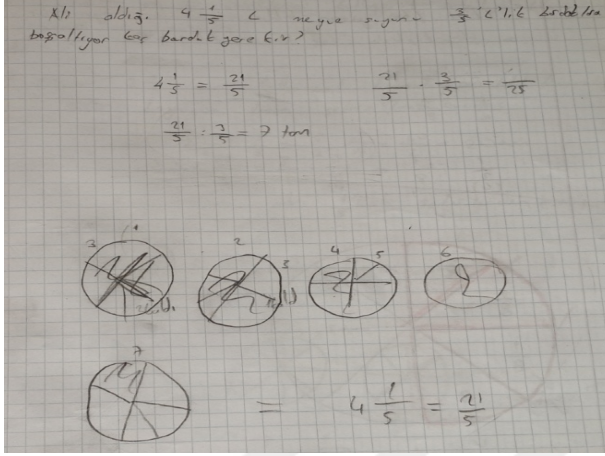 Ali aldığı 4 1/5 L meyve suyunu 3/5 L'lik bardaklara
boşaltıyor kaç bardak gerekir?
4 1/5 = 21/5
21/5 . 3/5 = /25
21/5 : 3/5 = 7 tam
1 2 3 4 5 6
3
7
= 4 1/5 = 21/5